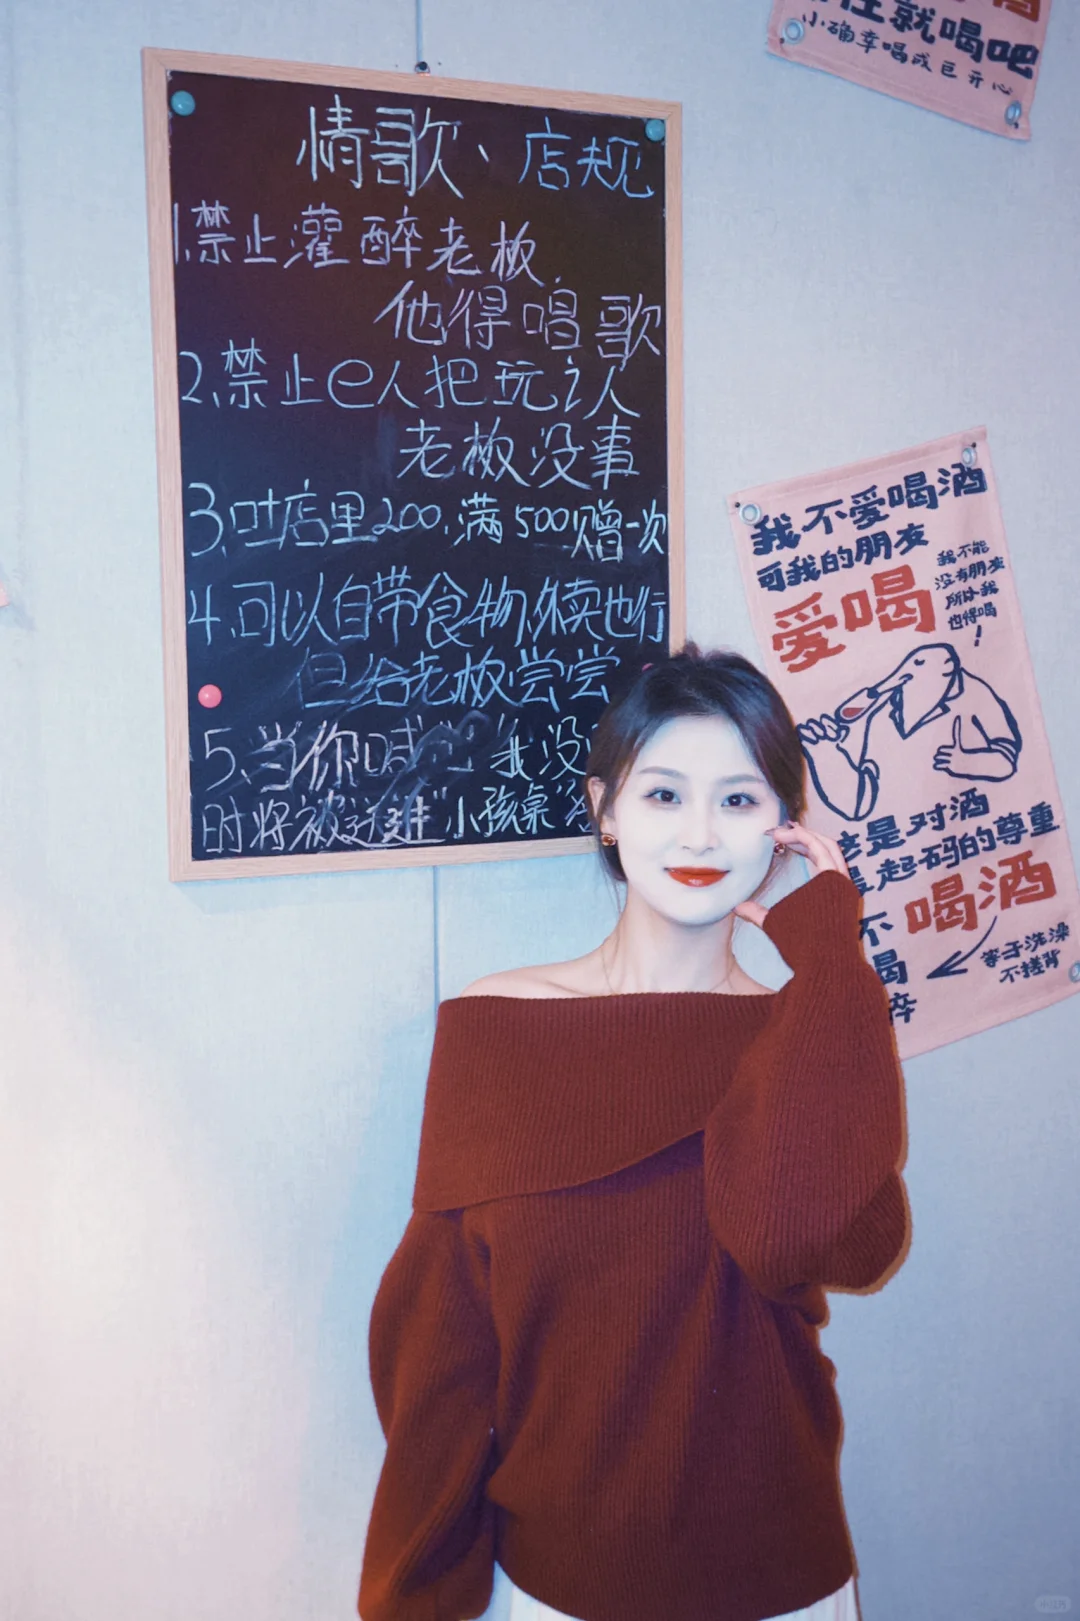 情歌、店规
1.禁止灌醉老板
他得唱歌
2.禁止e人把玩i人
老板没事
3.吐店里200.满500赠一次
4.可以自带食物.外卖也行
但给老板尝尝
5.当你喊 我没
时将被送进"小孩桌"
住就喝吧
小确幸喝成巨开心
我不爱喝酒
可我的朋友
爱喝
我不能
没有朋友
所以我
也得喝
!
这是对酒
最起码的尊重
不 喝酒
喝
等于洗澡
不搓背
醉
小红书